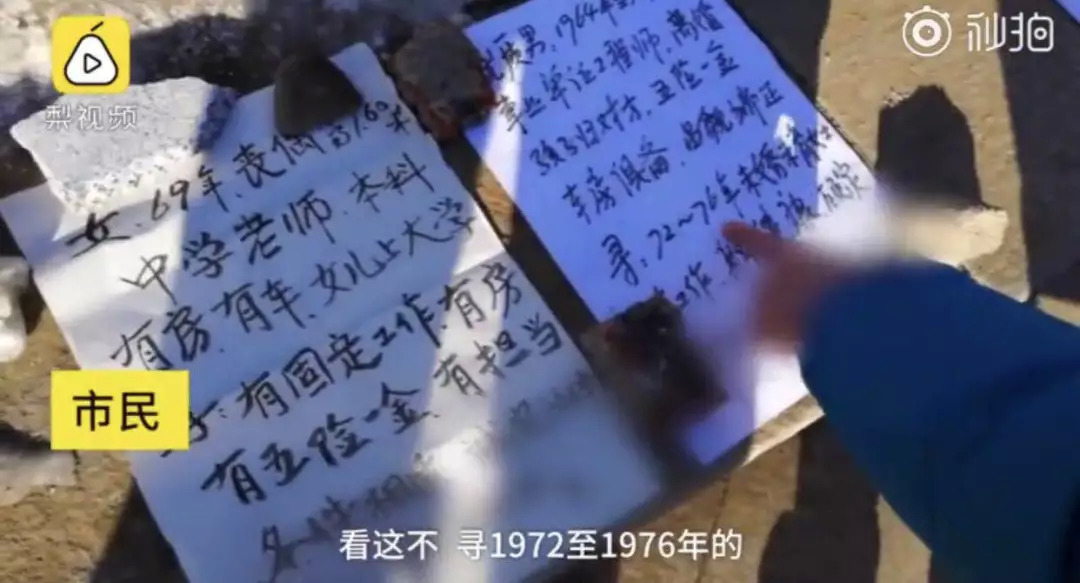 梨视频
秒拍
女.69年、丧偶高1.60米
中学老师.本科
有房.有车.女儿上大学
寻:有固定工作.有房
有五险一金、有担当
男,1964年
事业单位工程师.离婚
孩子归对方.五险一金
车房俱备.品貌端正
寻:72~76年未婚
工作.
市民
看这不 寻1972至1976年的